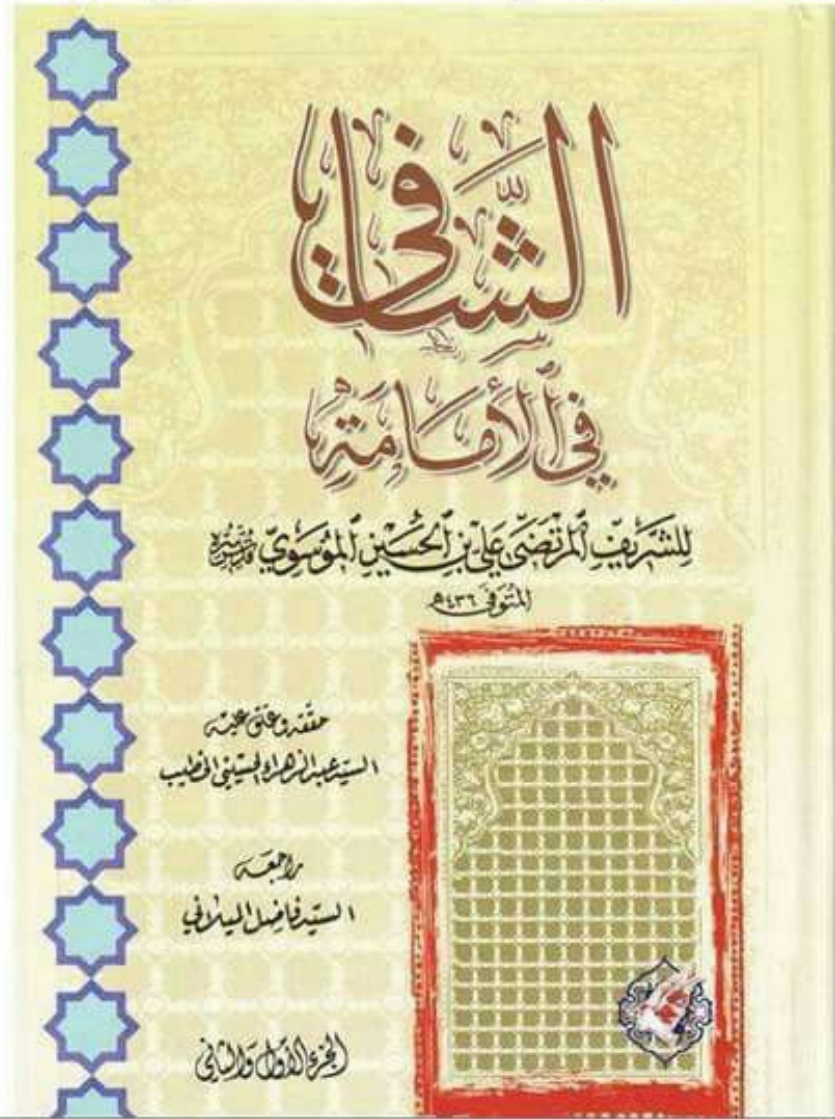 الشَّافي
في الأمامة
للشريف المرتضى علي بن الحسين الموسوي قدس سره
المتوفى ٤٣٦ه
حققه وعلق عليه
السيد عبد الزهراء الحسيني الخطيب
راجعه
السيد فاضل الميلاني
الجزء الأول والثاني